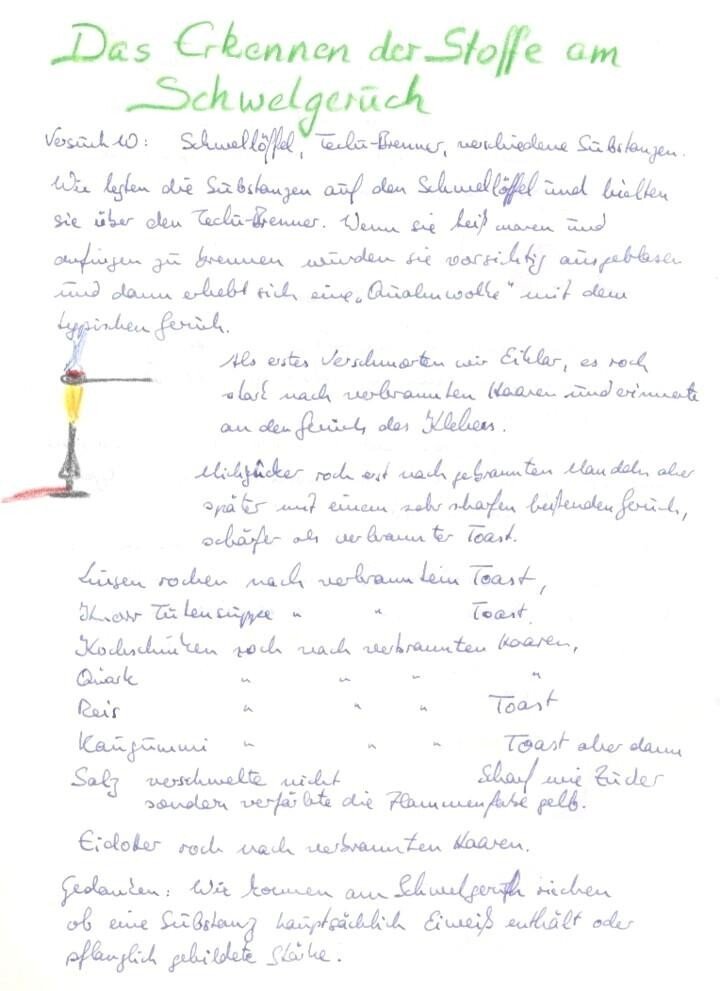 Das Erkennen der Stoffe am
Schwelgerüch
Versuch 10: Schwellöffel, Teclu-Brenner, verschiedene Substanzen.
Wir legten die Substanzen auf den Schwellöffel und hielten
sie über den Teclu-Brenner. Wenn sie heiß waren und
anfingen zu brennen wurden sie vorsichtig ausgeblasen
und dann erhebt sich eine „Qualmwolke" mit dem
typischen Geruch.
Als erstes verschmorten wir Eiklar, es roch
stark nach verbrannten Haaren und erinnerte
an den Geruch des Klebers.
Milchzucker roch erst nach gebrannten Mandeln aber
später mit einem sehr scharfen beißenden Geruch,
schärfer als verbrannter Toast.
Linsen rochen nach verbranntem Toast,
Knorr Tütensuppe " " Toast.
Kochschinken roch nach verbrannten Haaren,
Quark " " " "
Reis " " " Toast
Kaugummi " " " Toast aber dann
Salz verschwelte nicht Scharf wie Zucker
sondern verfärbte die Flammenfarbe gelb.
Eidotter roch nach verbrannten Haaren.
Gedanken: Wir konnen am Schwelgeruch riechen
ob eine Substanz hauptsächlich Eiweiß enthält oder
pflanzlich gebildete Stärke.